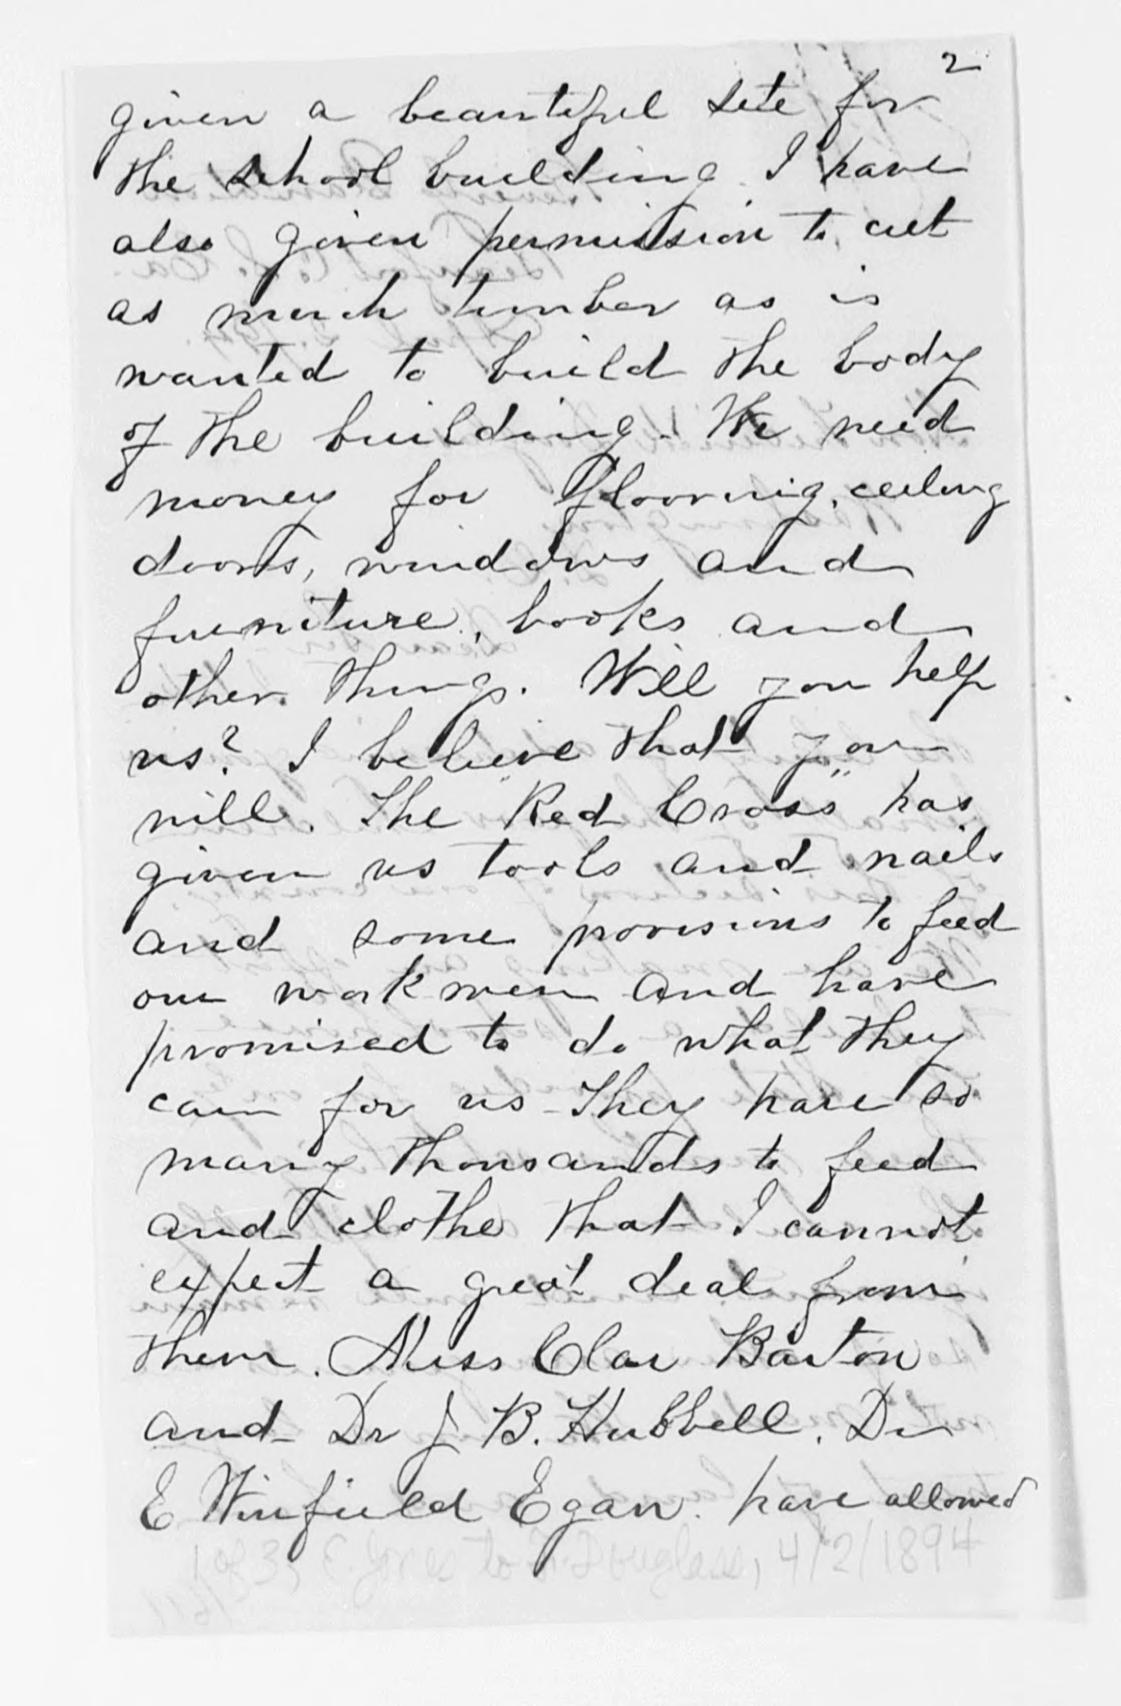 2
given a beautiful site for
the school building. I have
also given permission to cut
as much timber as is
wanted to build the body
of the building. We need
money for flooring, ceiling
doors, windows and
furniture, books and
other things. Will you help
us? I believe that you
will. The "Red Cross" has
given us tools and nails
and some provisions to feed
our workmen and have
promised to do what they
can for us - They have so
many thousands to feed
and clothe that I cannot
expect a great deal from
them. Miss Clar Barton
and Dr J B. Hubbell. Dr
E Winfield Egan. have allowed
1 of 3, E. Jones to F. Douglass, 4/2/1894